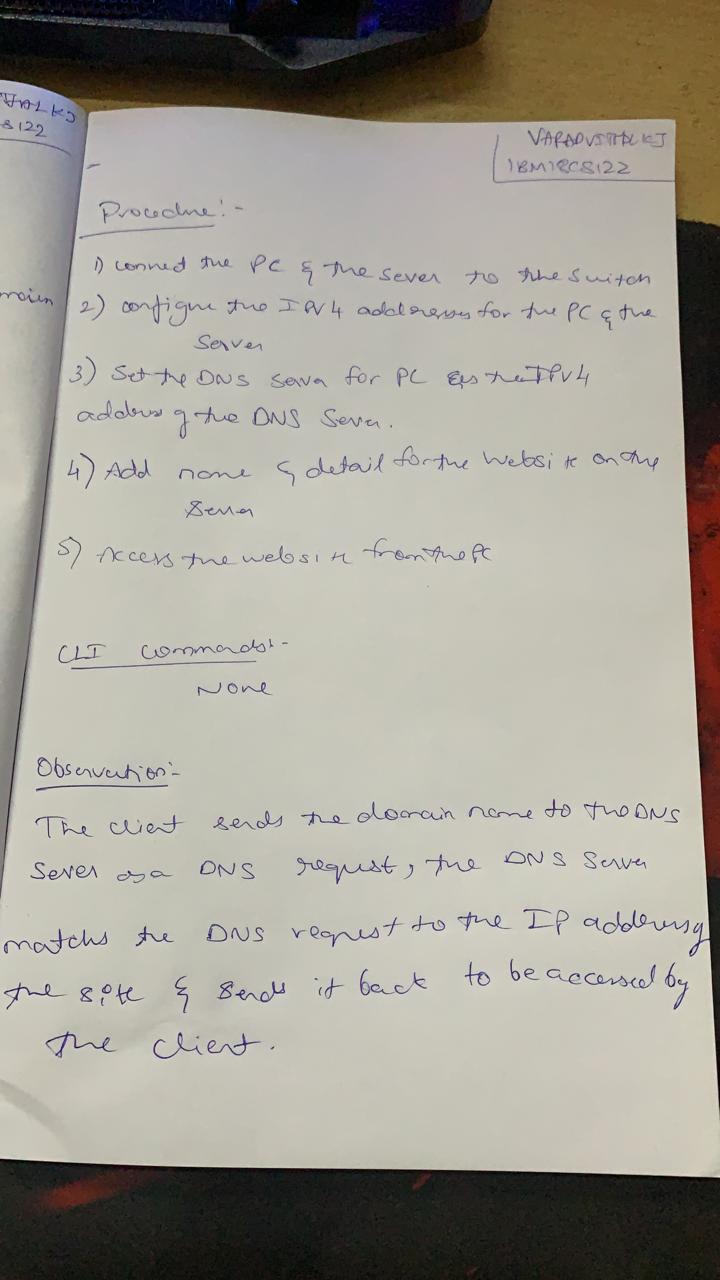 VARADVITTHAL KJ
1BM18CS122
8122
Procedure:-
1) connect the PC & the Sever to the Switch
2) configure the IPV4 addresses for the PC & the
Server
3) Set the DNS server for PC as the IPV4
address of the DNS Server.
4) Add name & detail for the website on the
Server
5) Access the website from the PC
CLI Commands:-
None
Observation:-
The client sends the domain name to the DNS
Sever as a DNS request, the DNS Server
matches the DNS request to the IP address of
the site & sends it back to be accessed by
the client.